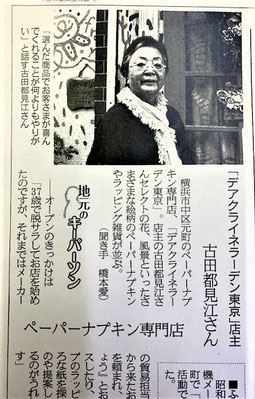 「選んだ商品でお客さまが喜ん
でくれることが何よりもやりが
い」と話す古田都見江さん
「デアクライネラーデン東京」店主
古田都見江さん
横浜市中区元町のペーパーナプ
キン専門店、「デアクライネラー
デン東京」。店主の古田都見江さ
んセレクトの花、風景といったさ
まざまな絵柄のペーパーナプキン
やラッピング雑貨が並ぶ。
（聞き手　橋本愛）
地元の
キーパーソン
―オープンのきっかけは
「37歳で脱サラしてお店を始め
たのですが、それまではメーカー
ペーパーナプキン専門店
の貿易担当
から来たお
を頼まれ、
ょう』とお
スしたり、
プのラッピ
ろな紙を探
のや提案し
るのがうれ
す」